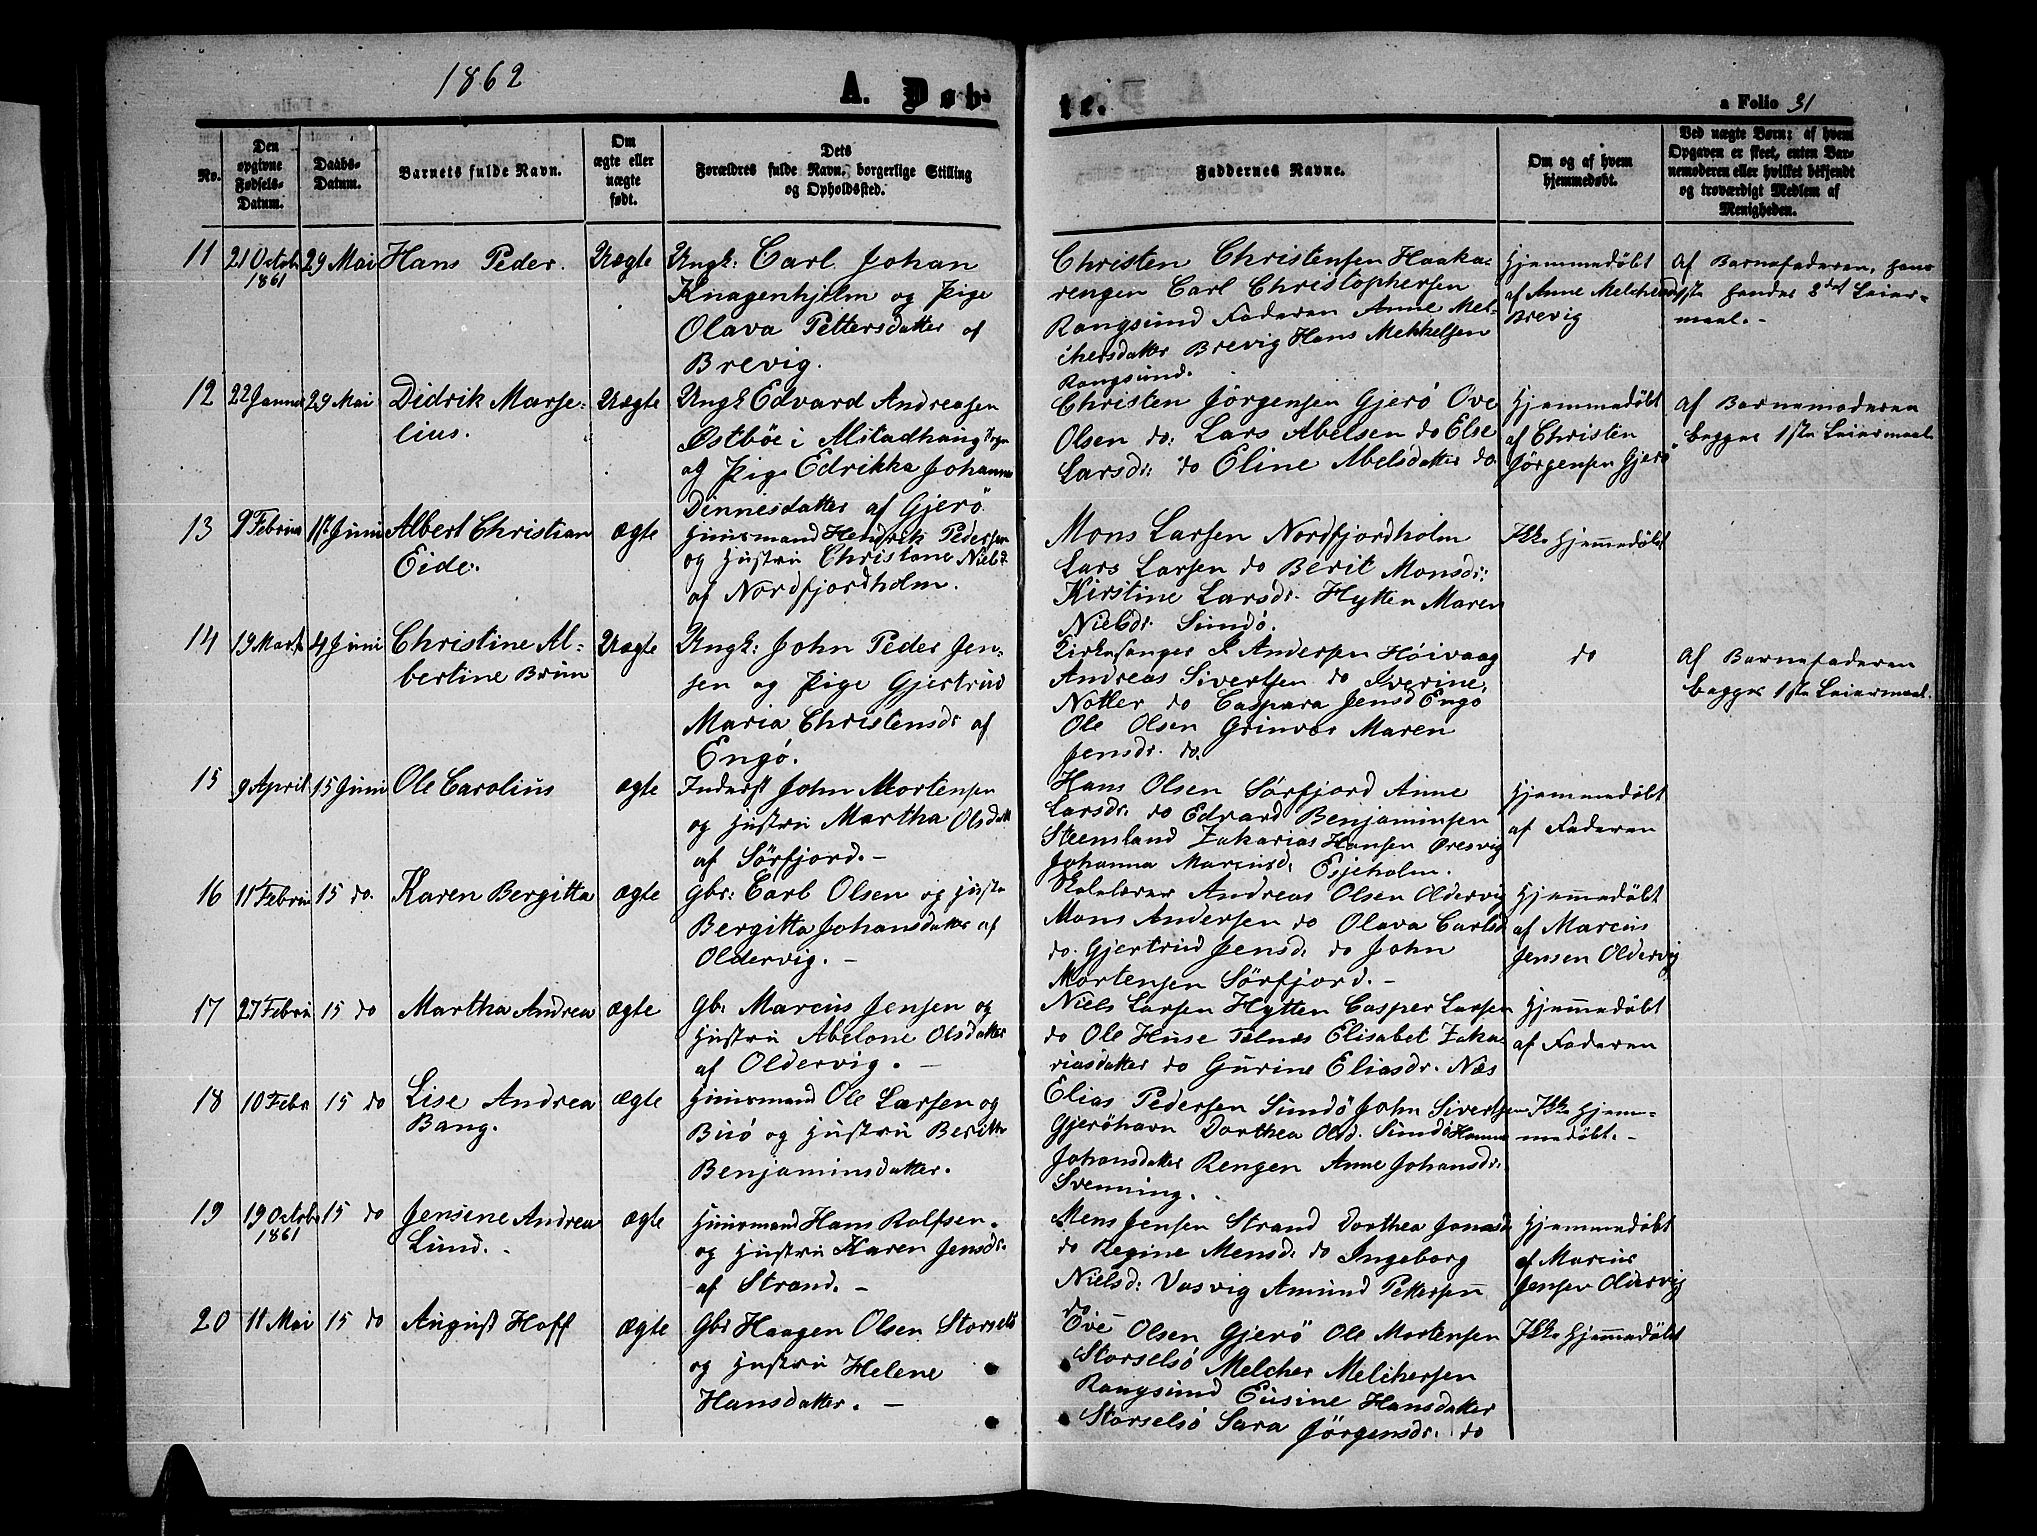 1862
A. Døb-
te.
a Folio 31
No.
Den opgivne Fødsels-Datum.
Daabs-Datum.
Barnets fulde Navn.
Om ægte eller uægte født.
Dets Forældres fulde Navn, borgerlige Stilling og Opholdssted.
Faddernes Navne.
Om og af hvem hjemmedøbt.
Ved uægte Børn: af hvem Opgaven er skeet, enten Barnemoderen eller hvilket bekjendt og troværdigt Medlem af Menigheden.
11 21 Octobr 29 Mai Hans Peder. Uægte Ungk: Carl Johan
1861
Knagenhjelm og Pige
Olava Pettersdatter af
Brevig.
Christen Christensen Haaka-
rengen Carl Christophersen
Rangsund Faderen Anne Mel-
chersdatter Brevig Hans Mekkelsen
Rangsund.
Hjemmedöbt
af Anne Melchersd
Brevig
Af Barnefaderen, hans
1ste hendes 3die Leier-
maal. -
12 22 Janua 29 Mai Didrik Marse- Uægte Ungk Edvard Andreasen
lius.
Østböe i Alstadhaug Progn
og Pige Edrikka Johanna
Dinnesdatter af Gjerö
Christen Jörgensen Gjerö Ove
Olsen do: Lars Abelsen do Else
Larsdr: do Eline Abelsdatter do
Hjemmedöbt
af Christen
Jörgensen Gjerö
Af Barnemoderen
begges 1ste Leiermaal
13 9 Februa 1st Juni Albert Christian ægte Huusmand Hendrik Pedersen
Eide.
og Hustru Christane Nielsd
af Nordfjordholm.
Mons Larsen Nordfjordholm
Lars Larsen do Berit Monsdr:
Kirstine Larsdr. Hytten Maren
Nielsdr. Sundö.
Ikke Hjemmedöbt
14 19 Marts 4 Juni Christine Al- Uægte Ungk: John Peder Jen-
bertine Brun
sen og Pige Gjertrud
Maria Christensdr af
Engö.
Kirkesanger J. Andersen Höivaag
Andreas Sivertsen do Iverine,
Notler do Caspara Jensd Engö
Ole Olsen Grinvær Maren
Jensdr. do.
do
Af Barnefaderen
begges 1ste Leiermaal.
15 9 April 15 Juni Ole Carolius ægte Inderst John Mortensen
og Hustru Martha Olsdatt
af Sörfjord. -
Hans Olsen Sörfjord Anne
Larsdr. do Edvard Benjaminsen
Steensland Zakarias Hansen Øresvig
Johanna Marcusd. Esjeholm.
Hjemmedöbt
af Faderen
16 11 Februa 15 do. Karen Bergitta ægte Gbr: Carl Olsen og Husta
Bergitta Johansdatter af
Oldervig. -
Skolelærer Andreas Olsen Oldervig
Mons Andersen do Olava Carlsd
do. Gjertrud Jensd. do John
Mortensen Sörfjord. -
Hjemmedöbt
af Marcus
Jensen Oldervig
17 27 Febru 15 do Martha Andrea ægte Gbr Marcus Jensen og
Hustru Abelone Olsdatter
af Oldervig. -
Niels Larsen Hytten Casper Larsen
do Ole Huse Telnes Elisabet Zaka-
riasdatter do Gurine Eliasdr. Næs
Hjemmedöbt
af Faderen
18 10 Febr 15 do Lise Andrea ægte Huusmand Ole Larsen og
Bang.
Buö og Hustru Beritte
Benjaminsdatter.
Elias Pedersen Sundö John Sivertsen
Gjeröhavn Dorthea Olsd. Sundö Hanna
Johansdatter Rengen Anne Johansdr.
Svenning.
Ikke Hjem-
medöbt. -
19 19 Octob 15 do Jensine Andrea ægte Huusmand Hans Rolfsen.
1861 Lund. -
og Hustru Karen Jensdr.
af Strand. -
Mens Jensen Strand Dorthea Jonasd
do Regine Mensd. do Ingeborg
Nielsd: Vasvig Amund Pettersen
do
Hjemmedöbt
af Marcus
Jensen Oldervig
20 11 Mai 15 do August Hoff ægte Gbr Haagen Olsen Storselö
og Hustru Helene
Hansdatter. -
Ove Olsen Gjerö Ole Mortensen
Storselsö Melcher Melchersen
Rangsund Eusine Hansdatter
Storselsö Sara Jörgensdr. do
Ikke Hjemmedöbt